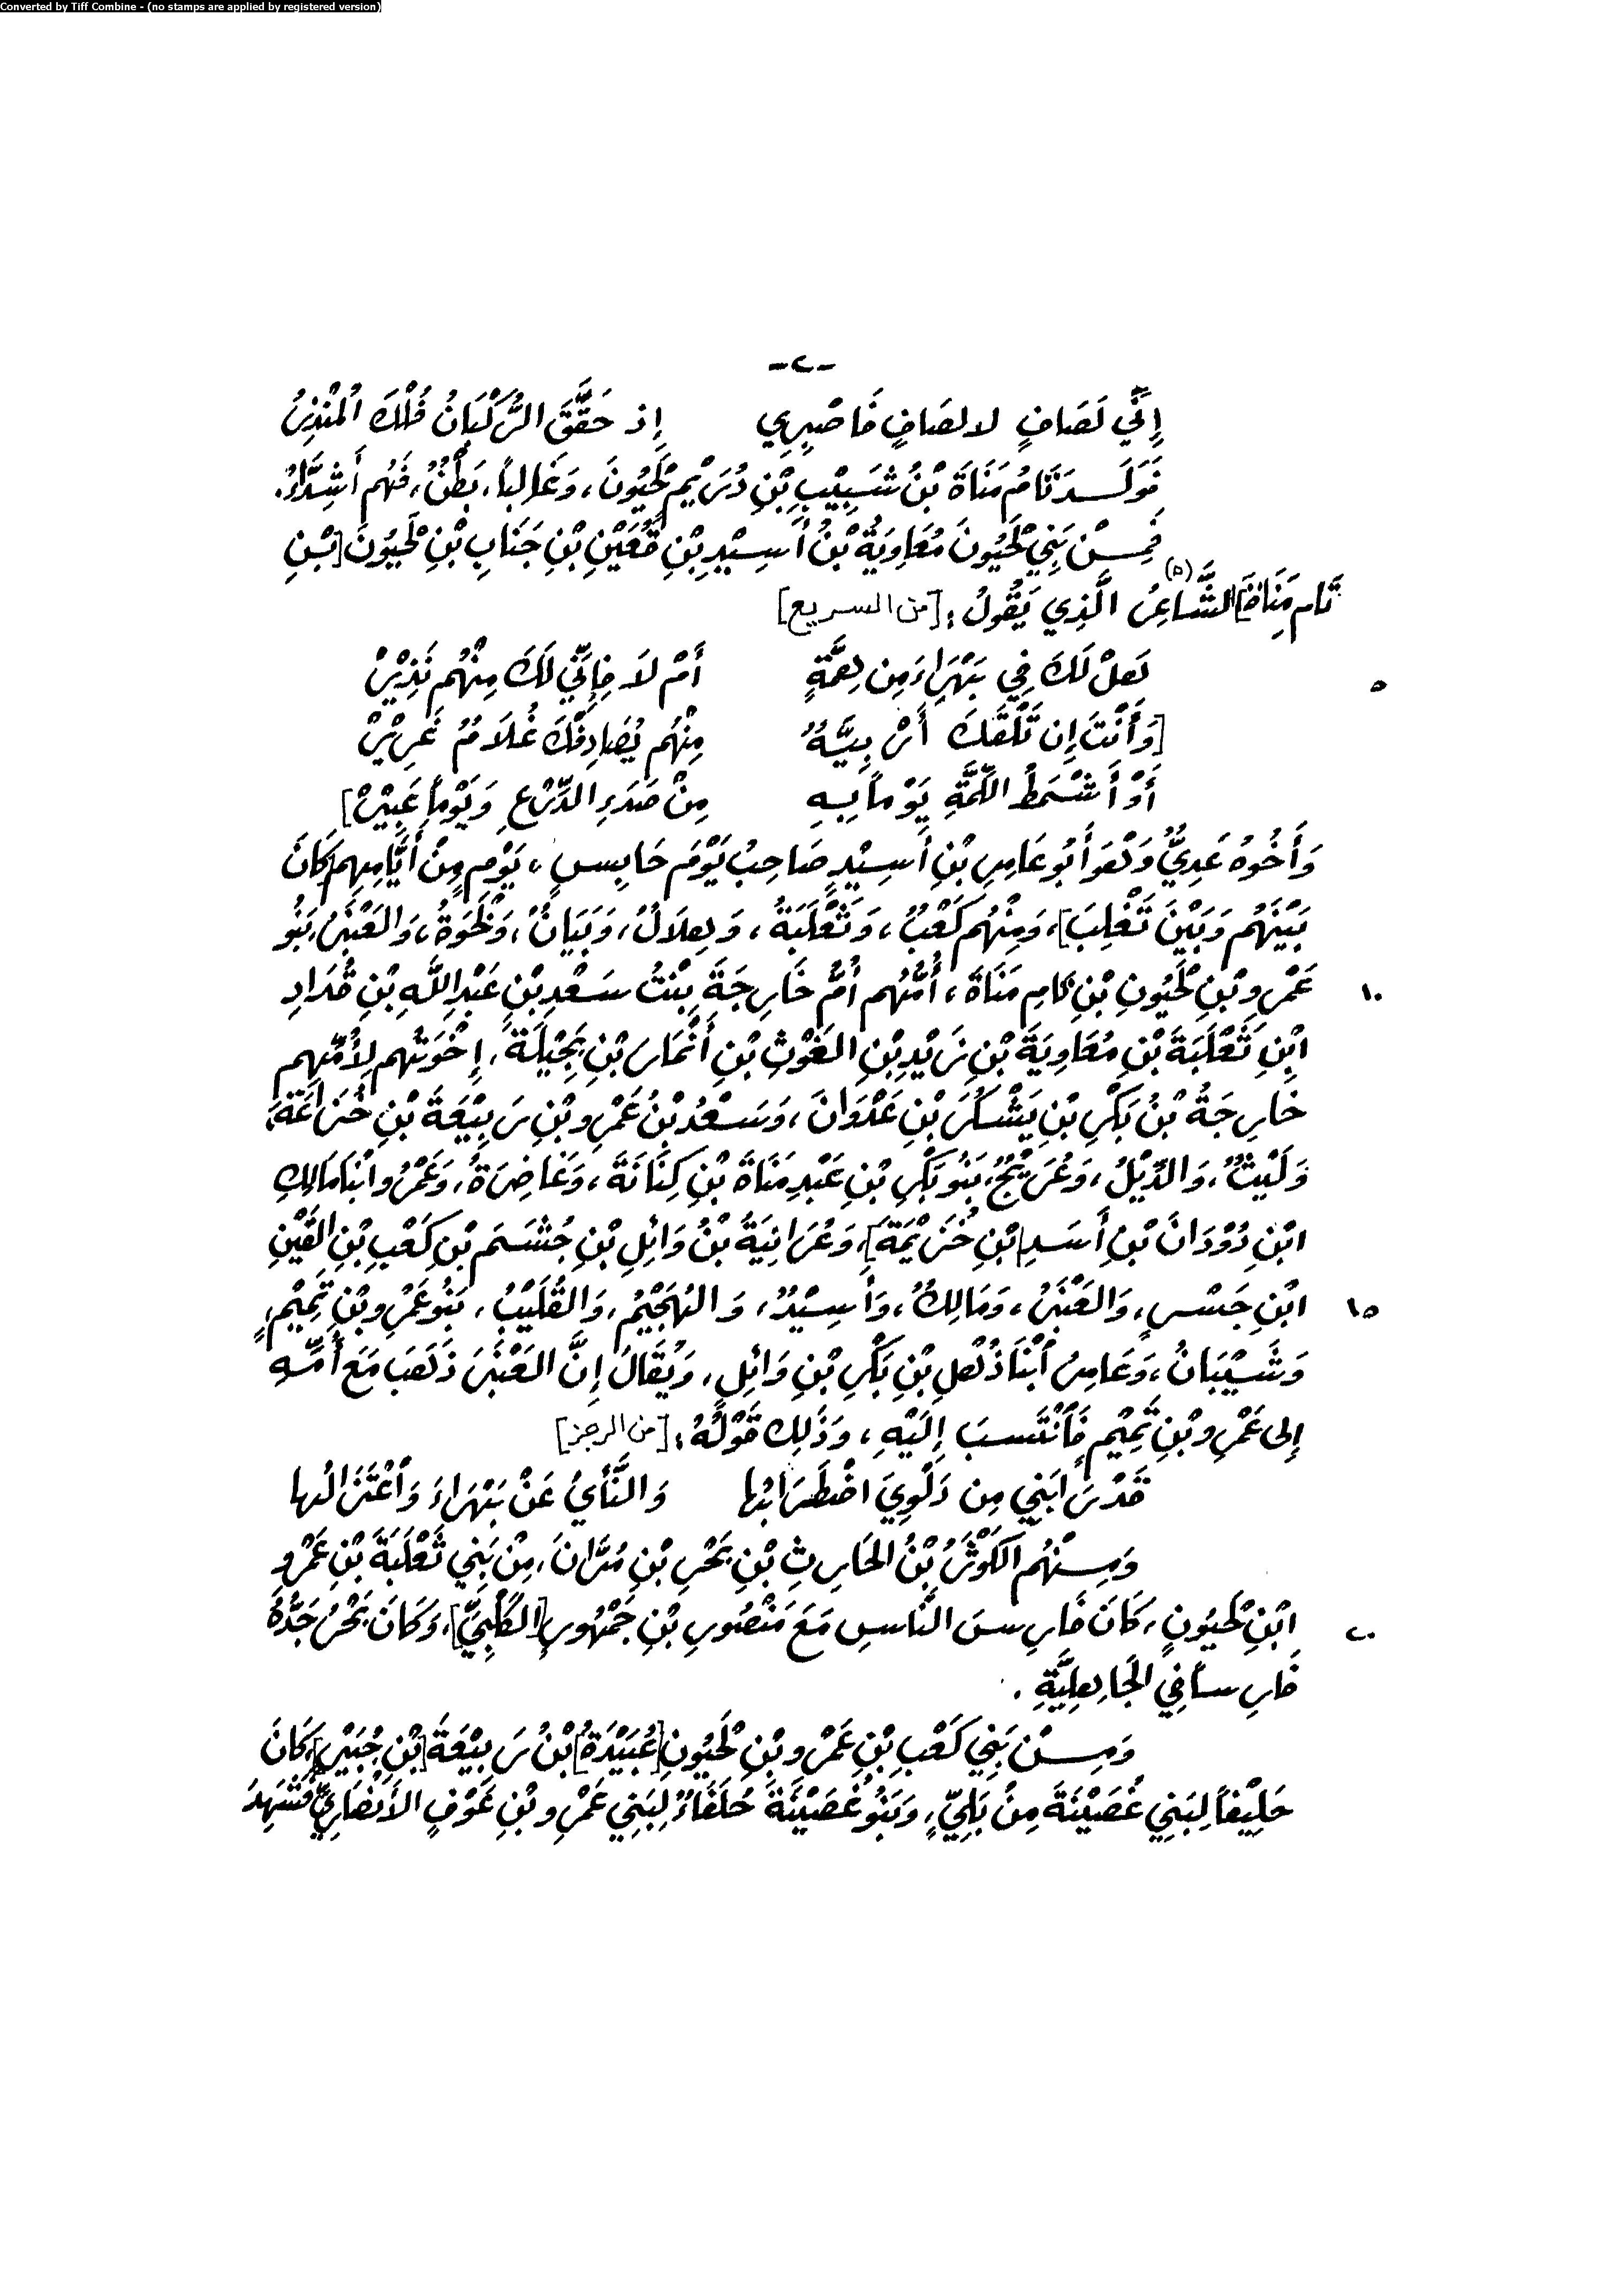 Converted by Tiff Combine - (no stamps are applied by registered version)
-٢-
إِنِّي لَصَافٍ لا لصَافٍ فَاصْبِرِي إِذ حَقَّقَ الرُّكْبَانُ هُلْكَ المُنْذِرُ
فَوَلَدَ تَامُ مَنَاةَ بْنُ شَبِيْبِ بْنِ دُرَيْمٍ لْحَيُونَ، وَغَالِباً، بَطْنٌ، فَهُم أَشِدَّاءُ.
فَمِنْ بَنِي لْحَيُونَ مُعَاوِيَةُ بْنُ أَسِيْدِ بْنِ قُعَيْنِ بْنِ جَنَابِ بْنِ لْحَيُونَ [بْنِ
تَام مَنَاةَ] الشَّاعِرُ (٥) الَّذِي يَقُولُ: [من السريع]
٥ لعلْ لَكَ فِي بَهْرَاءَ مِن نِعمَّةٍ أَمْ لاَ فَإِنِّي لَكَ مِنْهُم نَذِيْرْ
[وَأَنْتَ إِن تَلْقَكَ أَرْبِيَّةٌ مِنْهُم يُصَادِفْكَ غُلاَمٌ غَرِيْرْ
أَوْ أَشْمَطُ اللِّمَّةِ يَوْماً بِهِ مِنْ صَدَءِ الدِّرْعِ وَيَوْماً عَبِيْرْ]
وَأَخُوهُ عَدِيٌّ وَهُوَ أَبُو عَامِرِ بْنِ أَسِيْدٍ صَاحِبُ يَوْمَ حَابِسٍ، يَوْمٍ مِنْ أَيَّامِهِم كَانَ
بَيْنَهُم وَبَيْنَ تَغْلِبَ]، وَمِنْهُم كَعْبٌ، وَثَعْلَبَةُ، وَهِلاَلٌ، وَبَيَانٌ، وَلَحْوَةُ، وَالعَنْبَرُ، بَنُو
١٠ عَمْرِو بْنِ لْحَيُونِ بْنِ تَامِ مَنَاةَ، أُمُّهُم أُمُّ خَارِجَةَ بِنْتُ سَعْدِ بْنِ عَبْدِ اللَّهِ بْنِ قُدَادِ
ابْنِ ثَعْلَبَةَ بْنِ مُعَاوِيَةَ بْنِ زَيْدِ بْنِ الغَوْثِ بْنِ أَنْمَارَ بْنِ بَجِيْلَةَ، إِخْوَتُهم لِأُمِّهِم
خَارِجَةُ بْنُ بَكْرِ بْنِ يَشْكُرَ بْنِ عَدْوَانَ، وَسَعْدُ بْنُ عَمْرِو بْنِ رَبِيْعَةَ بْنِ خُزَاعَةَ،
وَلَيْثٌ، وَالدِّيْلُ، وَعُرَيْجٌ، بَنُو بَكْرِ بْنِ عَبْدِ مَنَاةَ بْنِ كِنَانَةَ، وَغَاضِرَةُ، وَعَمْرٌو ابْنَا مَالِكِ
ابْنِ دُوْدَانَ بْنِ أَسَدِ [بْنِ خُزَيْمَةَ]، وَعُرَانِيَةُ بْنُ وَائِلِ بْنِ جُشَمَ بْنِ كَعْبِ بْنِ القَيْنِ
١٥ ابْنِ جَسْرٍ، وَالعَنْبَرُ، وَمَالِكٌ، وَأُسِيْدٌ، وَالهُجَيْمُ، وَالقُلَيْبُ، بَنُو عَمْرِو بْنِ تَمِيْمٍ،
وَشَيْبَانُ، وَعَامِرُ ابْنَا ذُهْلِ بْنِ بَكْرِ بْنِ وَائِلِ، وَيُقَالُ إِنَّ العَنْبَرَ ذَهَبَ مَعَ أُمِّهِ
إِلى عَمْرِو بْنِ تَمِيْمٍ فَانْتَسَبَ إِلَيْهِ، وَذَلِكَ قَوْلُهُ: [من الرجز]
قَدْ رَابَنِي مِن دَلْوِيَ اضْطَرَابُها وَالنَّأْيُ عَنْ بَهْرَاءَ وَاعْتَزَالُها
وَمِنْهُم الكَوْثَرُ بْنُ الحَارِثِ بْنِ بَحْرِ بْنِ مُرَّانَ، مِنْ بَنِي ثَعْلَبَةَ بْنِ عَمْرِو
٢٠ ابْنِ لْحَيُونِ، كَانَ فَارِسَ النَّاسِ مَعَ مَنْصُورِ بْنِ جَمْهُورِ [الكَلْبِيِّ]، وَكَانَ بَحْرُ جَدُّهُ
فَارِساً فِي الجَاهِلِيَّةِ.
وَمِنْ بَنِي كَعْبِ بْنِ عَمْرِو بْنِ لْحَيُونِ [عُبَيْدَةُ] بْنُ رَبِيْعَةَ [بْنِ جُبَيْرٍ] كَانَ
حَلِيْفاً لِبَنِي غُصَيْنَةَ مِنْ بَلِيٍّ، وَبَنُو غُصَيْنَةَ حُلَفَاءُ لِبَنِي عَمْرِو بْنِ عَوْفٍ الأَنْصَارِيِّ، شَهِدَ